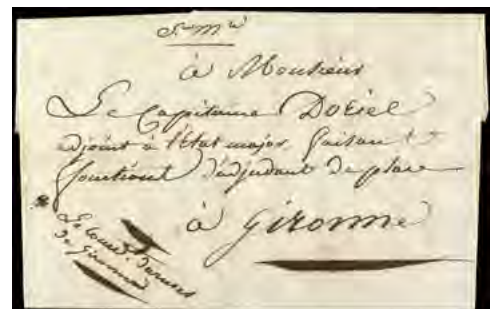 à Monsieur
Le Capitaine Doriel
adjoint à l'état major faisant
fonctions d'adjudant de place
à Gironne
Le
de Gironne